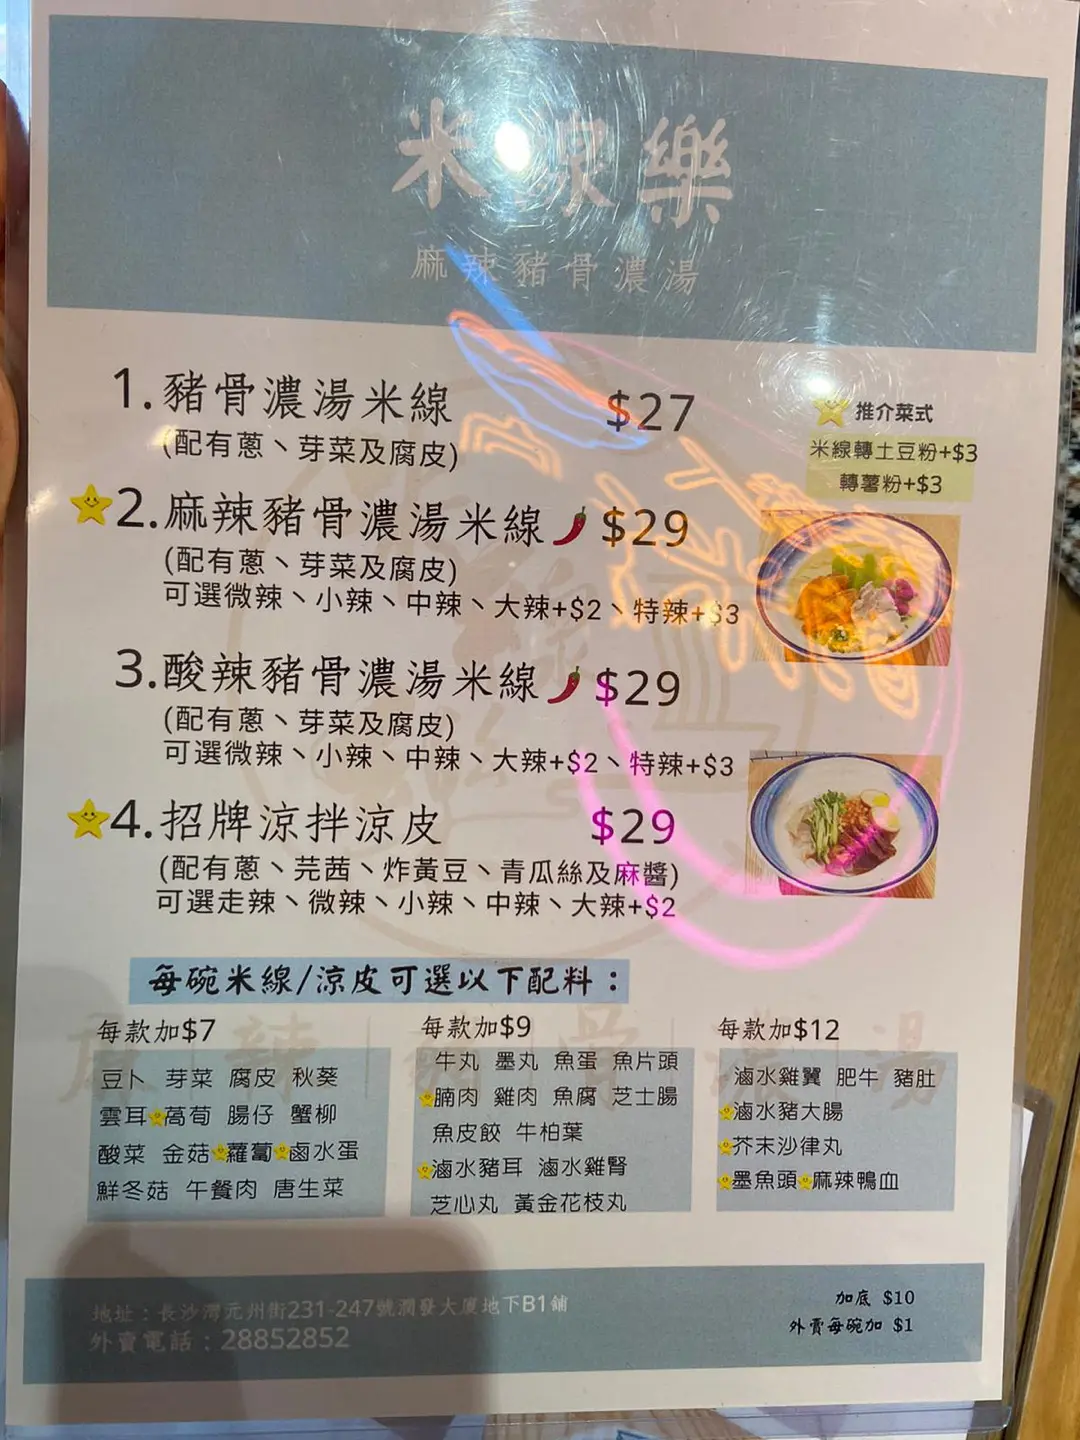 米線樂
麻辣豬骨濃湯
1.豬骨濃湯米線 $27
(配有蔥、芽菜及腐皮)
推介菜式
米線轉土豆粉+$3
轉薯粉+$3
2.麻辣豬骨濃湯米線 $29
(配有蔥、芽菜及腐皮)
可選微辣、小辣、中辣、大辣+$2、特辣+$3
3.酸辣豬骨濃湯米線 $29
(配有蔥、芽菜及腐皮)
可選微辣、小辣、中辣、大辣+$2、特辣+$3
4.招牌涼拌涼皮 $29
(配有蔥、芫茜、炸黃豆、青瓜絲及麻醬)
可選走辣、微辣、小辣、中辣、大辣+$2
每碗米線/涼皮可選以下配料：
每款加$7
豆卜 芽菜 腐皮 秋葵
雲耳 萵荀 腸仔 蟹柳
酸菜 金菇 蘿蔔 鹵水蛋
鮮冬菇 午餐肉 唐生菜
每款加$9
牛丸 墨丸 魚蛋 魚片頭
腩肉 雞肉 魚腐 芝士腸
魚皮餃 牛柏葉
滷水豬耳 滷水雞腎
芝心丸 黃金花枝丸
每款加$12
滷水雞翼 肥牛 豬肚
滷水豬大腸
芥末沙律丸
墨魚頭 麻辣鴨血
麻辣豬骨濃湯
地址：長沙灣元州街231-247號潤發大廈地下B1舖
外賣電話：28852852
加底 $10
外賣每碗加 $1